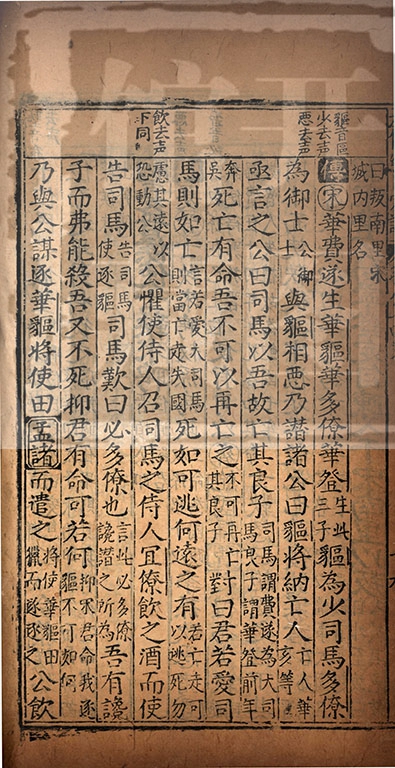 貙音區
少去声
惡去声
飲去声
下同
曰叛南里宋城内里名
傳宋華費遂生華貙華多僚華登生此三子貙為少司馬多僚
為御士公御士與貙相惡乃譖諸公曰貙將納亡人亡人華亥等
亟言之公曰司馬以吾故亡其良子司馬謂費遂為大司馬良子謂華登前年
奔吳死亡有命吾不可以再亡之不可再亡其良子對曰君若愛司
馬則如亡言若愛大司馬則當亡走失國死如可逃何遠之有若亡走可以逃死勿
慮其遠以恐動公公懼使侍人召司馬之侍人宜僚飲之酒而使
告司馬告司馬使逐貙司馬歎曰必多僚也言此必多僚讒譖之所為吾有讒
子而弗能殺吾又不死抑君有命可若何抑宋君命我逐貙不可如何
乃與公謀逐華貙將使田孟諸而遣之將使華貙田獵而遂逐之公飲